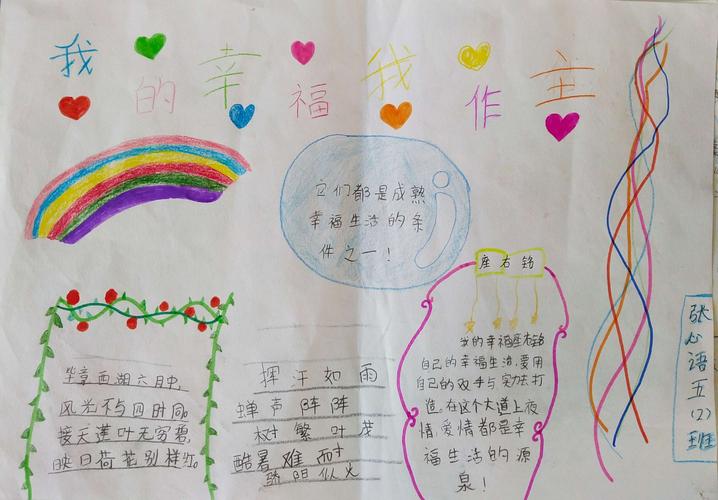 我的幸福我作主
它们都是成熟
幸福生活的条
件之一!
毕竟西湖六月中,
风光不与四时同。
接天莲叶无穷碧,
映日荷花别样红。
挥汗如雨
蝉声阵阵
树繁叶茂
酷暑难耐
骄阳似火
座右铭
的幸福座右铭
自己的幸福生活,要用
自己的双手与实力去打
造.在这个大道上友
情,爱情都是幸
福生活的源
泉!
张心语五(2)班